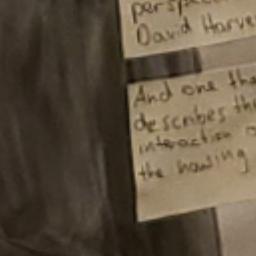 David Harve
And one tha
describes the
interaction o
the housing